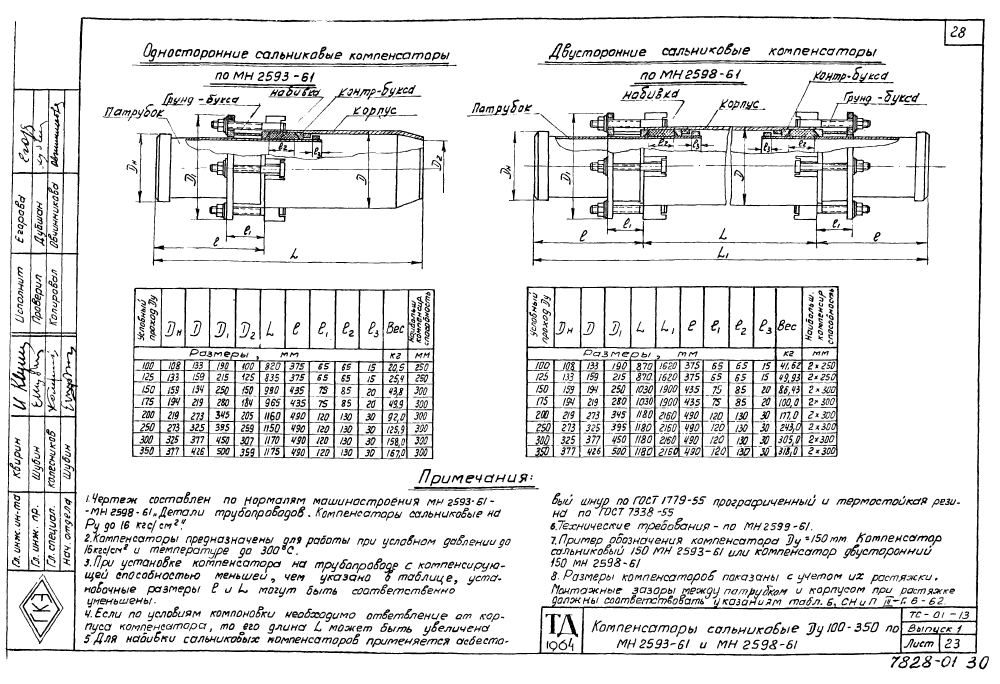 28
Односторонние сальниковые компенсаторы
по МН 2593-61
Грунд-букса
набивка
контр-букса
Патрубок
корпус
Dн
D1
D
D2
ℓ2
ℓ3
ℓ1
ℓ
L
Двусторонние сальниковые компенсаторы
по МН 2598-61
набивка
контр-букса
Патрубок
корпус
Грунд-букса
Dн
D1
D
ℓ2
ℓ3
ℓ3
ℓ2
ℓ1
ℓ1
ℓ
L
ℓ
L1
Условный проход Dу | Dн | D | D1 | D2 | L | ℓ | ℓ1 | ℓ2 | ℓ3 | Вес | Наибольш. компенсир. способность
Размеры, мм | кг | мм
100 108 133 190 100 820 375 65 65 15 20,5 250
125 133 159 215 125 835 375 65 65 15 25,4 250
150 159 194 250 150 990 435 75 85 20 43,8 300
175 194 219 280 184 965 435 75 85 20 49,9 300
200 219 273 345 205 1160 490 120 130 30 92,0 300
250 273 325 395 259 1150 490 120 130 30 125,9 300
300 325 377 450 307 1170 490 120 130 30 158,0 300
350 377 426 500 359 1175 490 120 130 30 167,0 300
Условный проход Dу | Dн | D | D1 | L | L1 | ℓ | ℓ1 | ℓ2 | ℓ3 | Вес | Наибольш. компенсир способность
Размеры, мм | кг | мм
100 108 133 190 870 1620 375 65 65 15 41,62 2×250
125 133 159 215 870 1620 375 65 65 15 49,93 2×250
150 159 194 250 1030 1900 435 75 85 20 86,43 2×300
175 194 219 280 1030 1900 435 75 85 20 100,0 2×300
200 219 273 345 1180 2160 490 120 130 30 177,0 2×300
250 273 325 395 1180 2160 490 120 130 30 243,0 2×300
300 325 377 450 1180 2160 490 120 130 30 305,0 2×300
350 377 426 500 1180 2160 490 120 130 30 318,0 2×300
Примечания:
1. Чертеж составлен по нормалям машиностроения МН 2593-61-
-МН 2598-61 „Детали трубопроводов. Компенсаторы сальниковые на
Ру до 16 кгс/см²"
2. Компенсаторы предназначены для работы при условном давлении до
16кгс/см² и температуре до 300°С.
3. При установке компенсатора на трубопроводе с компенсирую-
щей способностью меньшей, чем указано в таблице, уста-
новочные размеры ℓ и L могут быть соответственно
уменьшены.
4. Если по условиям компоновки необходимо ответвление от кор-
пуса компенсатора, то его длина L может быть увеличена
5 Для набивки сальниковых компенсаторов применяется асбесто-
вый шнур по ГОСТ 1779-55 прографиченный и термостойкая рези-
на по ГОСТ 7338-55
6. Технические требования - по МН 2599-61.
7. Пример обозначения компенсатора Dу=150мм Компенсатор
сальниковый 150 МН 2593-61 или компенсатор двусторонний
150 МН 2598-61
8. Размеры компенсаторов показаны с учетом их растяжки.
Монтажные зазоры между патрубком и корпусом при растяжке
должны соответствовать указаниям табл. 6, СН и П III-Г. 6-62.
ТД
1964
Компенсаторы сальниковые Dу 100-350 по
МН 2593-61 и МН 2598-61
ТС-01-13
Выпуск 1
Лист 23
7828-01 30
Гл. инж. ин-та Квирин
Гл. инж. пр. Шубин
Гл. специал. Колесников
Нач отдела Шубин
Исполнит Егорова
Проверил Дубшан
Копировал Овчинникова
ГКЭ